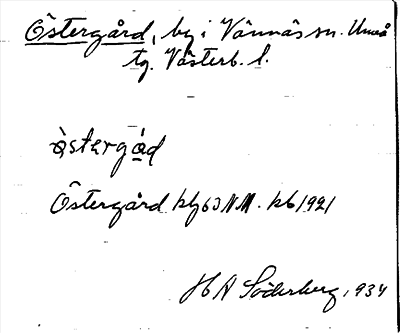 Östergård, by i Vännäs sn. Umeå
tg. Västerb. l.
östergåd
Östergård kbj 63 N.M. kb 1921
H A Söderberg, 1934